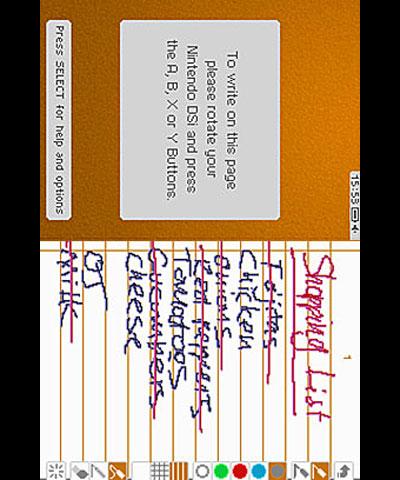 To write on this page
please rotate your
Nintendo DSi and press
the A, B, X or Y Buttons.
Press SELECT for help and options
15:53
1
Shopping List
Fajitas
Chicken
Onions
Red Peppers
Tomatoes
Cucumbers
Cheese
OJ
Milk